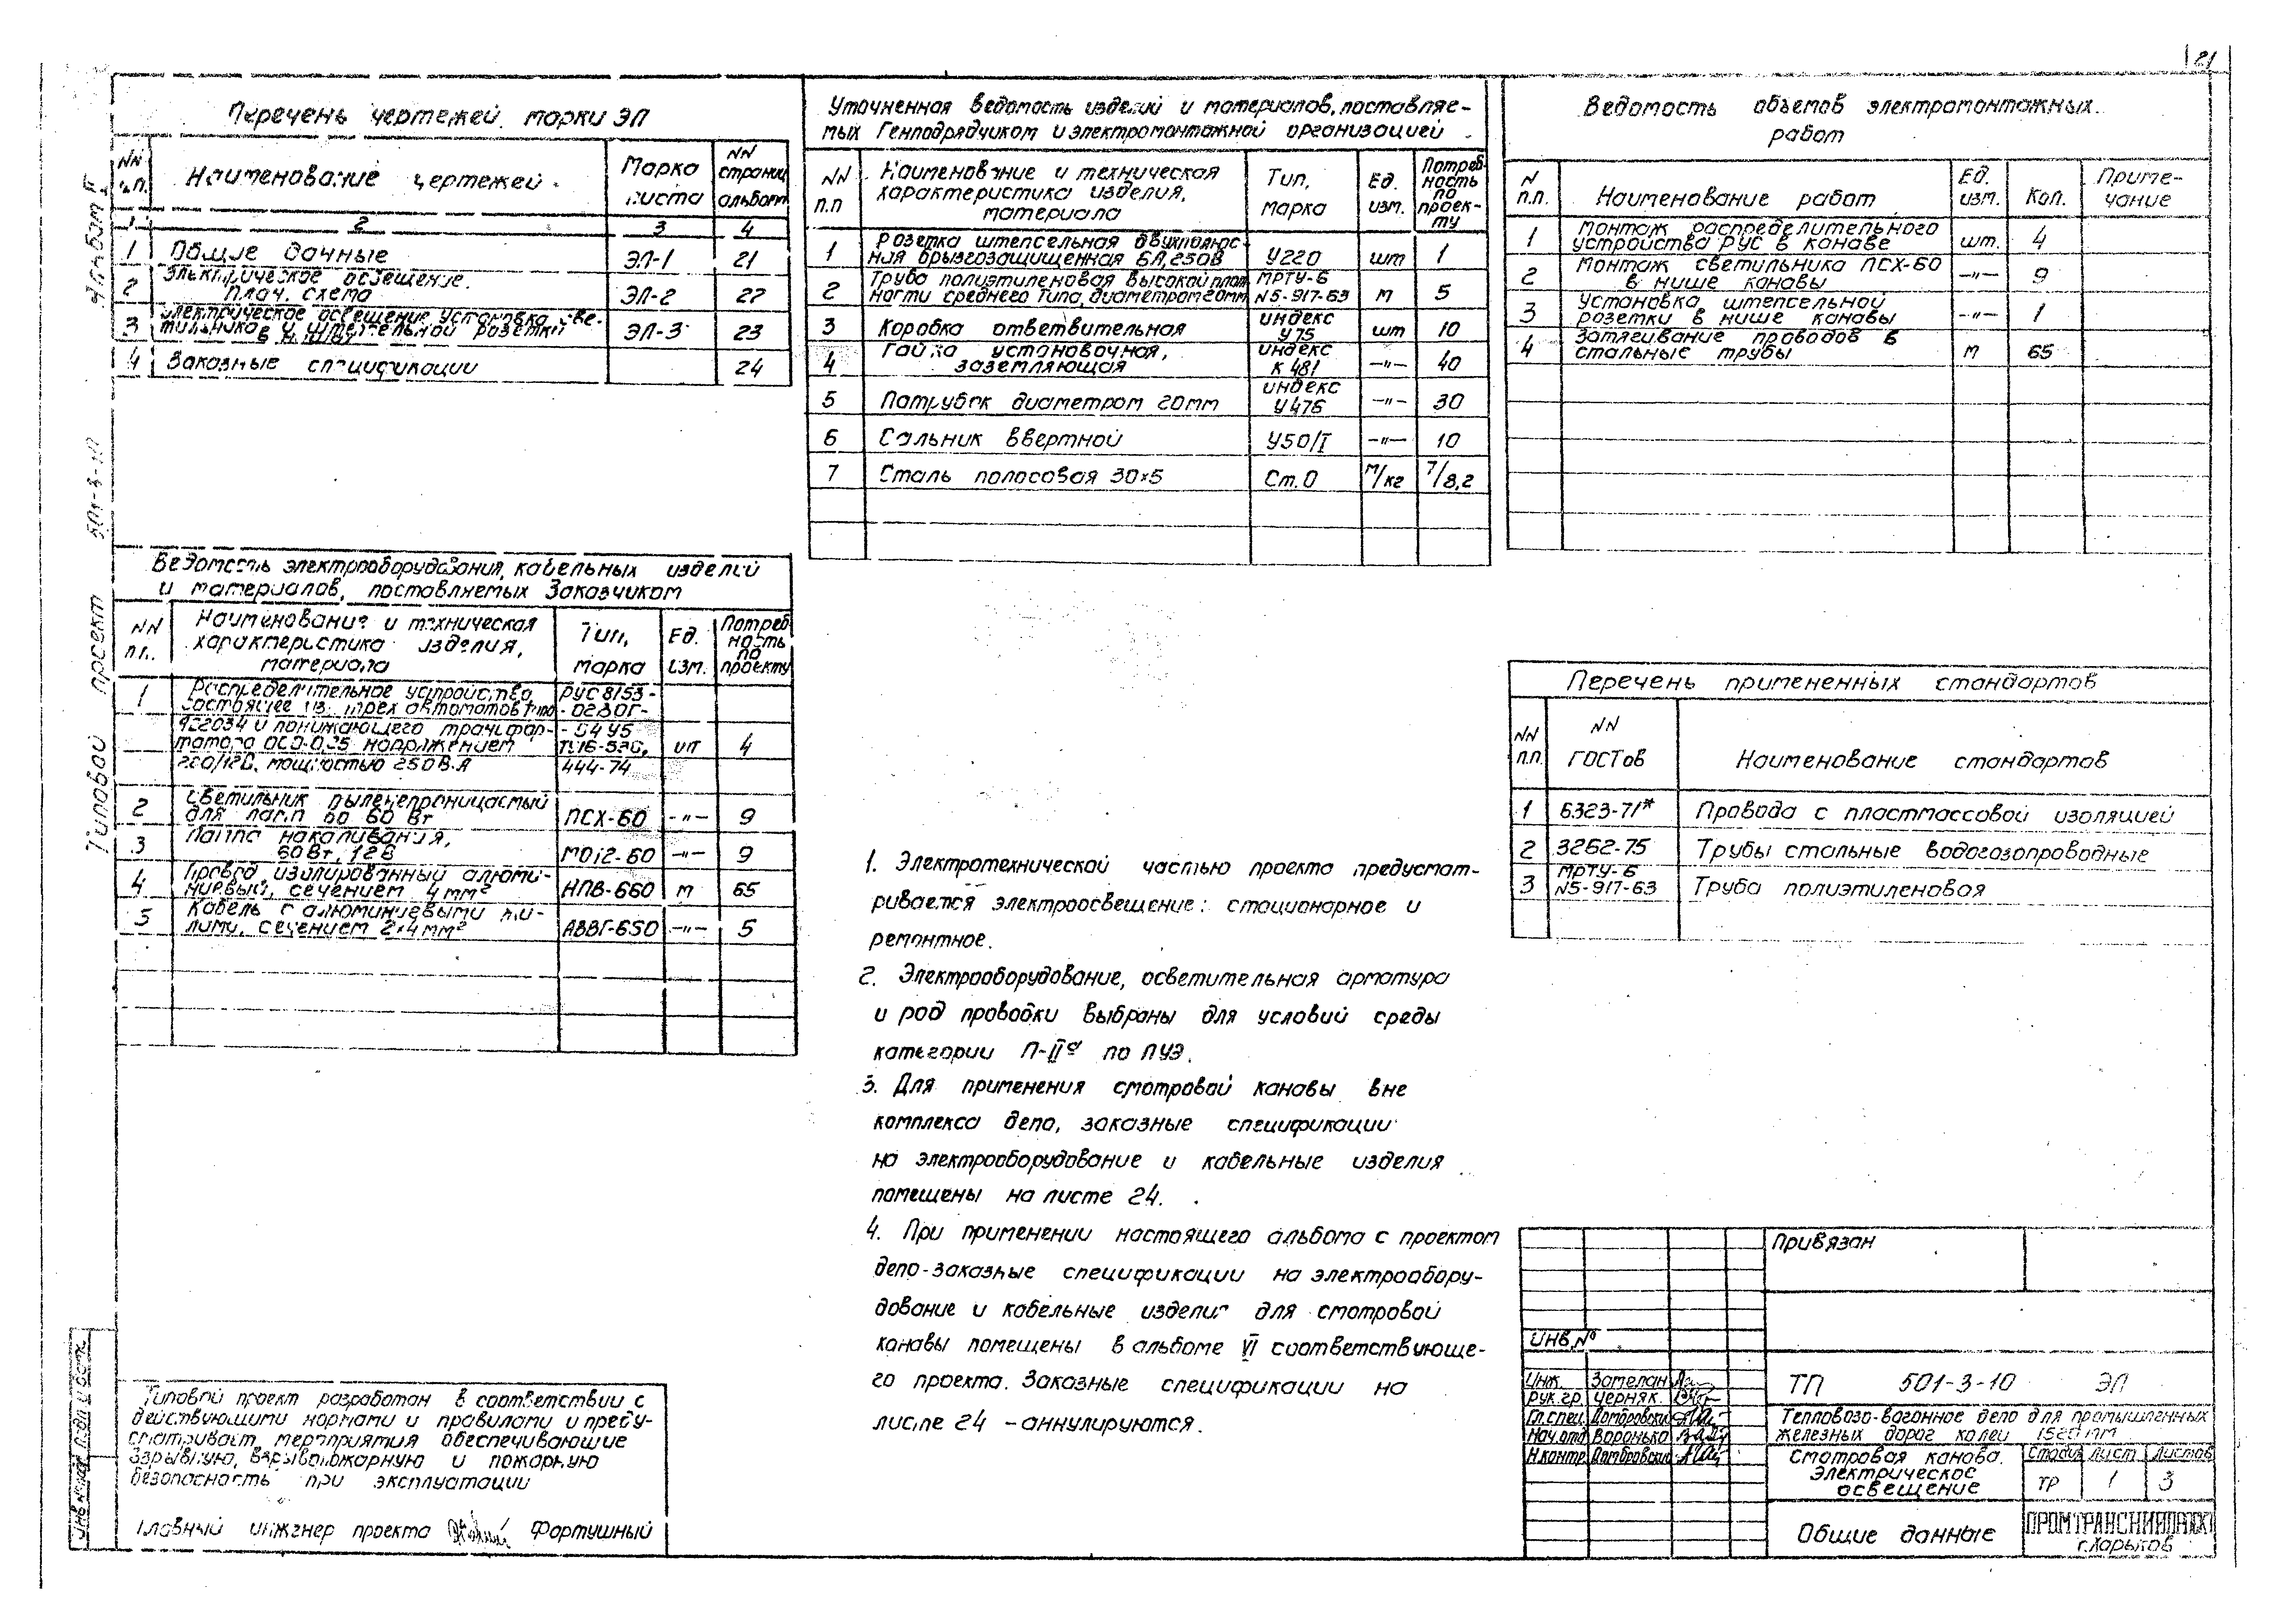 21
Альбом II
501-3-10
Типовой проект
Перечень чертежей марки ЭЛ
NN п.п. Наименование чертежей. Марка листа NN страниц альбома
1 2 3 4
1 Общие данные ЭЛ-1 21
2 Электрическое освещение. План, схема ЭЛ-2 22
3 Электрическое освещение установка све-
тильников и штепсельной розетки в нишах ЭЛ-3 23
4 Заказные спецификации 24
Ведомость электрооборудования, кабельных изделий
и материалов, поставляемых Заказчиком
NN п.п. Наименование и техническая характеристика изделия, материала Тип, марка Ед. изм. Потреб-ность по проекту
1 Распределительное устройство, РУС 8153-
состоящее из трех автоматов типа -0230Г-
и понижающего трансфор- -54У5
матора ОСО-0,25 напряжением ТУ16-536, шт 4
220/12В, мощностью 250 В·А 444-74
2 Светильник пыленепроницаемый
для ламп до 60 Вт ПСХ-60 —"— 9
3 Лампа накаливания,
60Вт, 12В МО12-60 —"— 9
4 Провод изолированный алюми-
ниевый, сечением 4мм² НПВ-660 м 65
5 Кабель с алюминиевыми жи-
лами, сечением 2×4мм² АВВГ-660 —"— 5
Типовой проект разработан в соответствии с
действующими нормами и правилами и преду-
сматривает мероприятия обеспечивающие
взрывную, взрывопожарную и пожарную
безопасность при эксплуатации
Главный инженер проекта Фортушный
Инв № подл. Подп. и дата
Уточненная ведомость изделий и материалов, поставляе-
мых Генподрядчиком и электромонтажной организацией
NN п.п Наименование и техническая характеристика изделия, материала Тип, марка Ед. изм. Потреб-ность по проек-ту
1 Розетка штепсельная двухполюс-
ная брызгозащищенная 6А, 250В У220 шт 1
2 Труба полиэтиленовая высокой плот- МРТУ-6
ности среднего типа, диаметром 20мм N5-917-63 м 5
3 Коробка ответвительная индекс У75 шт 10
4 Гайка установочная, заземляющая индекс К 481 —"— 40
5 Патрубок диаметром 20мм индекс У476 —"— 30
6 Сальник ввертной У50/I —"— 10
7 Сталь полосовая 30×5 Ст.0 м/кг 7/8,2
1. Электротехнической частью проекта предусмат-
ривается электроосвещение: стационарное и
ремонтное.
2. Электрооборудование, осветительная арматура
и род проводки выбраны для условий среды
категории П-IIª по ПУЭ.
3. Для применения смотровой канавы вне
комплекса депо, заказные спецификации
на электрооборудование и кабельные изделия
помещены на листе 24.
4. При применении настоящего альбома с проектом
депо-заказные спецификации на электрообору-
дование и кабельные изделия для смотровой
канавы помещены в альбоме VI соответствующе-
го проекта. Заказные спецификации на
листе 24 - аннулируются.
Ведомость объемов электромонтажных
работ
N п.п. Наименование работ Ед. изм. Кол. Приме-чание
1 Монтаж распределительного
устройства РУС в канаве шт. 4
2 Монтаж светильника ПСХ-60
в нише канавы —"— 9
3 Установка штепсельной
розетки в нише канавы —"— 1
4 Затягивание проводов в
стальные трубы м 65
Перечень примененных стандартов
NN п.п. NN ГОСТов Наименование стандартов
1 6323-71* Провода с пластмассовой изоляцией
2 3262-75 Трубы стальные водогазопроводные
3 МРТУ-6 N5-917-63 Труба полиэтиленовая
Привязан
Инв.№
Инж. Замелан
Рук.гр. Черняк
Гл.спец. Домбровский
Нач.отд Воронько
Н.контр. Домбровский
ТП 501-3-10 ЭЛ
Тепловозо-вагонное депо для промышленных
железных дорог колеи 1520 мм
Смотровая канава.
Электрическое
освещение
Стадия Лист Листов
ТР 1 3
Общие данные
ПРОМТРАНСНИИПРОЕКТ
г.Харьков